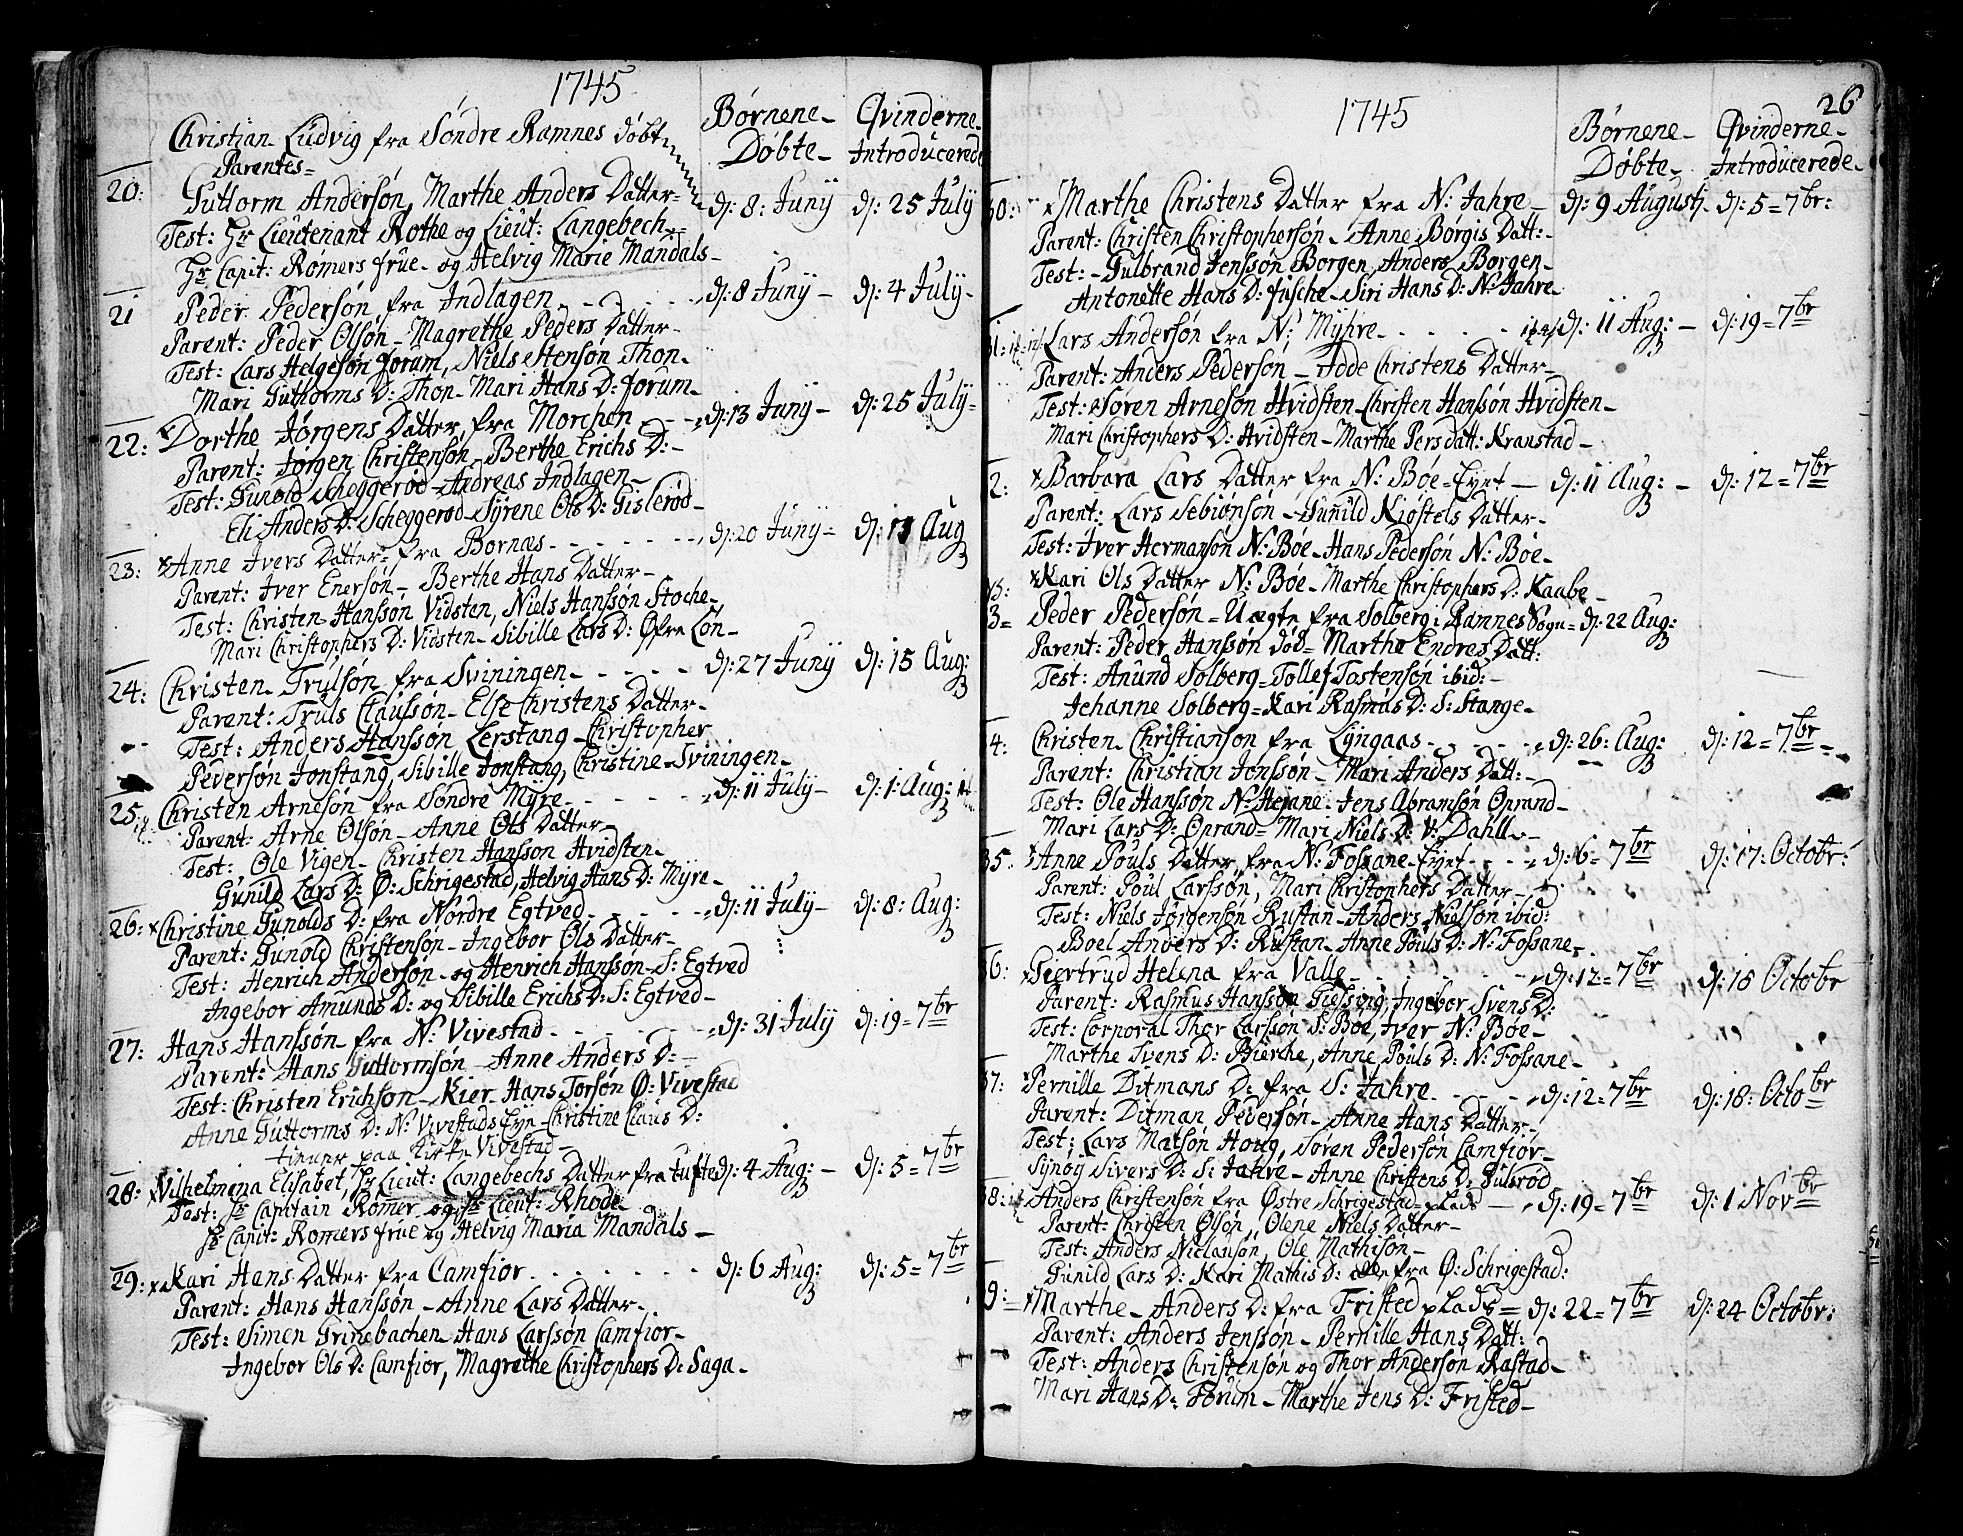 1745
Børnene Døbte
Qvinderne Introducerede
Christian Ludvig fra Søndre Ramnes døbt
Parentes
20: Guttorm Andersøn, Marthe Anders Datter d: 8: Junÿ d: 25 July
Test: Hr Lieutenant Rothe og Lieut: Langebech
Hr Capit: Rømers frue og Helvig Marie Mandals
21 Peder Pedersøn fra Indlagen d: 8 Juny d: 4 July
Parent: Peder Olsøn Magrethe Peders Datter
Test: Lars Helgesøn Forum, Niels Stensøn Thon
Mari Guttorms D: Thon Mari Hans D: Forum
22: Dorthe Jørgens Datter fra Morchen d: 13 Juny d: 25 July
Parent: Jørgen Christensøn Berthe Erichs D:
Test: Gunold Scheggerød Andreas Indlagen
Eli Anders D: Scheggerød Syrene Ols D: Gislerød
23: Anne Ivers Datter fra Bornæs d: 20 Juny d: Aug
Parent: Iver Enersøn Berthe Hans Datter
Test: Christen Hanssøn Vidsten, Niels Hanssøn Stoche
Mari Christophers D: Vidsten Sibille Lars D: Øfre Løn
24: Christen Trulsøn fra Sviningen d: 27 Juny d: 15 Aug:
Parent: Truls Claussøn Else Christens Datter
Test: Anders Hanssøn Lerstang Christopher
Pedersøn Jonstang, Sibille Jonstang, Christine Sviningen
25: Christen Arnesøn fra Søndre Myre d: 11 July d: 1: Aug:
Parent: Arne Olsøn Anne Ols Datter
Test: Ole Vigen Christen Hanssøn Hvidsten
Gunild Lars D: Ø: Schrigestad, Helvig Hans D: Myre
26: Christine Gunolds D: fra Nordre Egtved d: 11 July d: 8: Aug:
Parent: Gunold Christensøn Ingebor Ols Datter
Test: Henrich Andersøn og Henrich Hanssøn S: Egtved
Ingebor Amunds D: og Sibille Erichs D: S: Egtved
27: Hans Hanssøn fra N: Vivestad d: 31 July d: 19 = 7br
Parent: Hans Guttormsøn Anne Anders D:
Test: Christen Erichsøn Kier Hans Torsøn Ø: Vivestad
Anne Guttorms D: N: Vivestads Eyn Christine Claus D:
tiener paa Kirke Vivestad
28: Vilhelmina Elisabet, Hr Lieut: Langebechs Datter fra Tufte d: 4 Aug: d: 5 = 7br
Test: Hr Capitain Rømer og Hr Lieut: Rhode
Hr Capit: Romers frue og Helvig Maria Mandals
29: Kari Hans Datter fra Camfior d: 6 Aug: d: 5 = 7br
Parent: Hans Hanssøn Anne Lars Datter
Test: Simen Grinebachen Hans Larssøn Camfior
Ingebor Ols D: Camfior, Magrethe Christophers D: Saga
26
1745
Børnene Døbte
Qvinderne Introducerede
30: Marthe Christens Datter fra N: Jahre d: 9 Augusti d: 5 = 7br:
Parent: Christen Christophersøn Anne Børgis Datt:
Test: Gulbrand Jenssøn Borgen, Anders Borgen
Antonette Hans D: Fusche Siri Hans D: N: Jahre
31: Lars Andersøn fra N: Myhre d: 11 Aug: d: 19 = 7br
Parent: Anders Pedersøn Adde Christens Datter
Test: Søren Arnesøn Hvidsten Christen Hanssøn Hvidsten
Mari Christophers D: Hvidsten Marthe Pers datt: Kranstad
2: Barbara Lars Datter fra N: Bøe Eynt d: 11 Aug: d: 12 = 7br
Parent: Lars Sebiønsøn Gunild Kiøstels Datter
Test: Iver Hermansøn N: Bøe Hans Pedersøn N: Bøe
Kari Ols Datter N: Bøe Marthe Christophers D: Kaabe
3 = Peder Pedersøn = Uægte fra Solberg i Ramnes Sogn = d: 22 Aug:
Parent: Peder Hanssøn død = Marthe Endres Datt:
Test: Anund Solberg = Tollef Tostensøn ibid:
Jehanne Solberg = Kari Rasmus D: S: Stange
4: Christen Christiansøn fra Lyngaas d: 26: Aug: d: 12 = 7br
Parent: Christian Jonssøn Mari Anders Datt:
Test: Ole Hanssøn N: Hejane Jens Abramsøn Oprand
Mari Lars D: Oprand = Mari Niels D: V: Dahll
35: Anne Pouls Datter fra N: Fossane Eynt d: 6 = 7br d: 17: Octobr:
Parent: Poul Larssøn, Mari Christophers Datter
Test: Niels Jørgensøn Rustan Anders Nielssøn ibid:
Boel Anders D: Rustan Anne Pouls D: N: Fossane
6: Giertrud Helena fra Valle d: 12 = 7br d: 18 Octobr
Parent: Rasmus Hanssøn Giessing, Ingebor Svens D:
Test: Corporal Thor Larssøn S: Bøe, Iver N: Bøe
Marthe Svens D: Bierche, Anne Pouls D: N: Fossane
37: Pernille Ditmans D: fra S: Jahre d: 12 = 7br d: 18: Octobr
Parent: Ditman Pedersøn Anne Hans Datter
Test: Lars Matsøn Houg, Søren Pedersøn Camfior
Synøy Sivers D: S: Jahre Anne Christens D: Gulsrød
38: Anders Christensøn fra Østre Schrigestad plads d: 19 = 7br d: 1 Novbr
Parent: Christen Olsøn, Olene Niels Datter
Test: Anders Niclausøn, Ole Mathisøn
Gunild Lars D: Kari Mathis D: alle fra Ø: Schrigestad:
9: Marthe Anders D: fra Fristed plads = d: 22 = 7br d: 24 Octobr:
Parent: Anders Jenssøn Pernille Hans Datt:
Test: Anders Christensøn og Thor Andersøn Rastad
Mari Hans D: Forum Marthe Jens D: Fristed